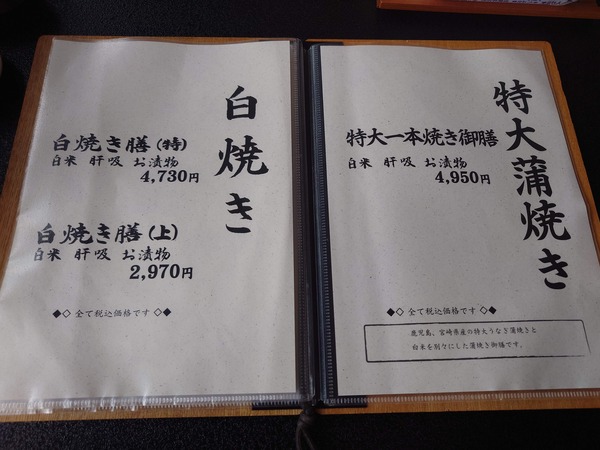 白焼き
白焼き膳(特)
白米 肝吸 お漬物
4,730円
白焼き膳(上)
白米 肝吸 お漬物
2,970円
◆◇ 全て税込価格です ◇◆
特大蒲焼き
特大一本焼き御膳
白米 肝吸 お漬物
4,950円
◆◇ 全て税込価格です ◇◆
鹿児島、宮崎県産の特大うなぎ蒲焼きと
白米を別々にした蒲焼き御膳です。